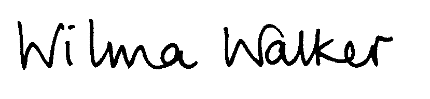 Wilma Walker